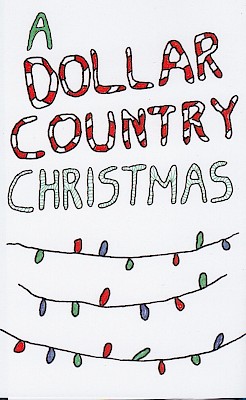 A
DOLLAR
COUNTRY
CHRISTMAS